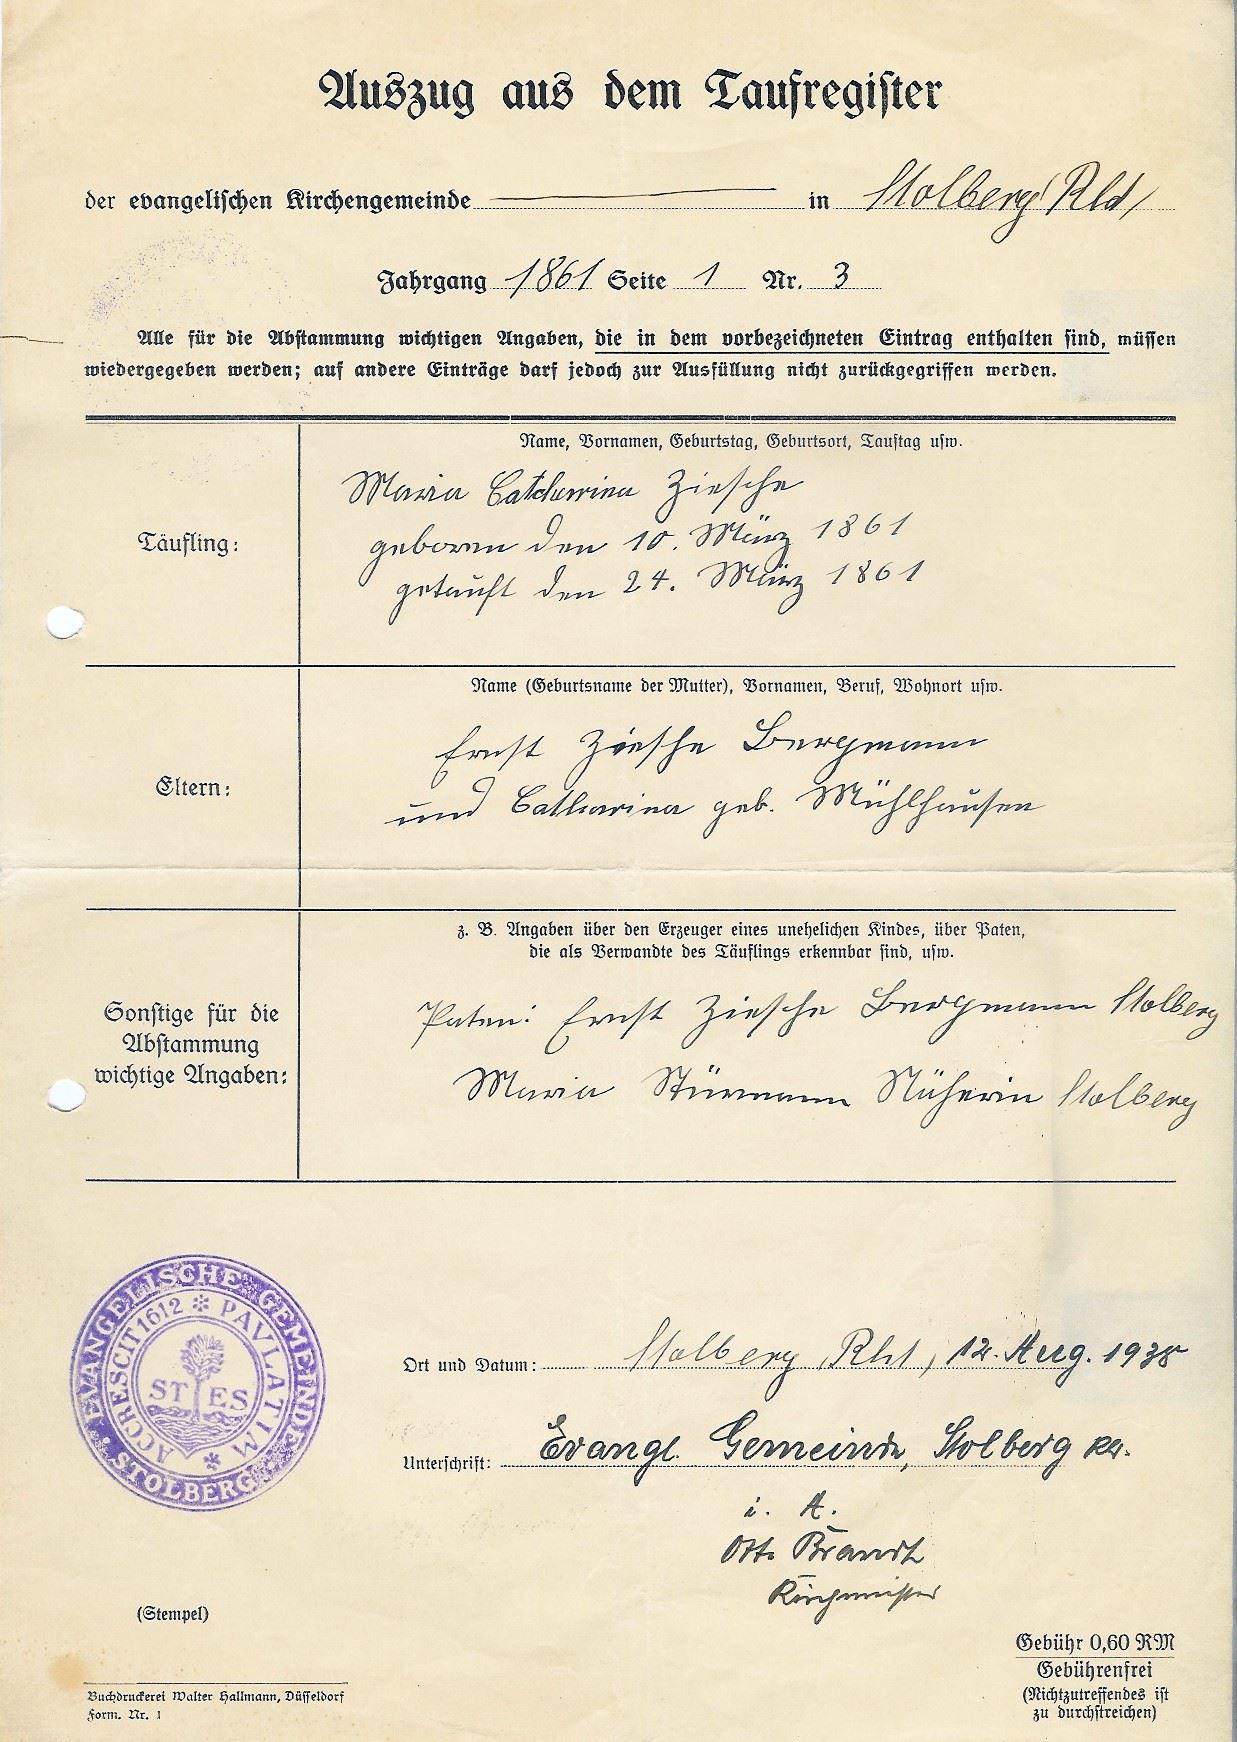 Auszug aus dem Taufregister
der evangelischen Kirchengemeinde in Stolberg Rld/
Jahrgang 1861 Seite 1 Nr. 3
Alle für die Abstammung wichtigen Angaben, die in dem vorbezeichneten Eintrag enthalten sind, müssen
wiedergegeben werden; auf andere Einträge darf jedoch zur Ausfüllung nicht zurückgegriffen werden.
Name, Vornamen, Geburtstag, Geburtsort, Tauftag usw.
Täufling:
Maria Catharina Ziesche
geboren den 10. März 1861
getauft den 24. März 1861
Name (Geburtsname der Mutter), Vornamen, Beruf, Wohnort usw.
Eltern:
Ernst Ziesche Bergmann
und Catharina geb. Mühlhausen
z. B. Angaben über den Erzeuger eines unehelichen Kindes, über Paten,
die als Verwandte des Täuflings erkennbar sind, usw.
Sonstige für die
Abstammung
wichtige Angaben:
Paten: Ernst Ziesche Bergmann Stolberg
Maria Stürmann Näherin Stolberg
EVANGELISCHE GEMEINDE STOLBERG
ACCRESCIT 1612 * PAVLATIM *
ST ES
Ort und Datum: Stolberg Rhl, 12. Aug. 1938
Unterschrift: Evangl. Gemeinde, Stolberg
i. A.
Otto Brandt
Kirchmeister
(Stempel)
Gebühr 0,60 RM
Gebührenfrei
(Nichtzutreffendes ist
zu durchstreichen)
Buchdruckerei Walter Hallmann, Düsseldorf
Form. Nr. 1